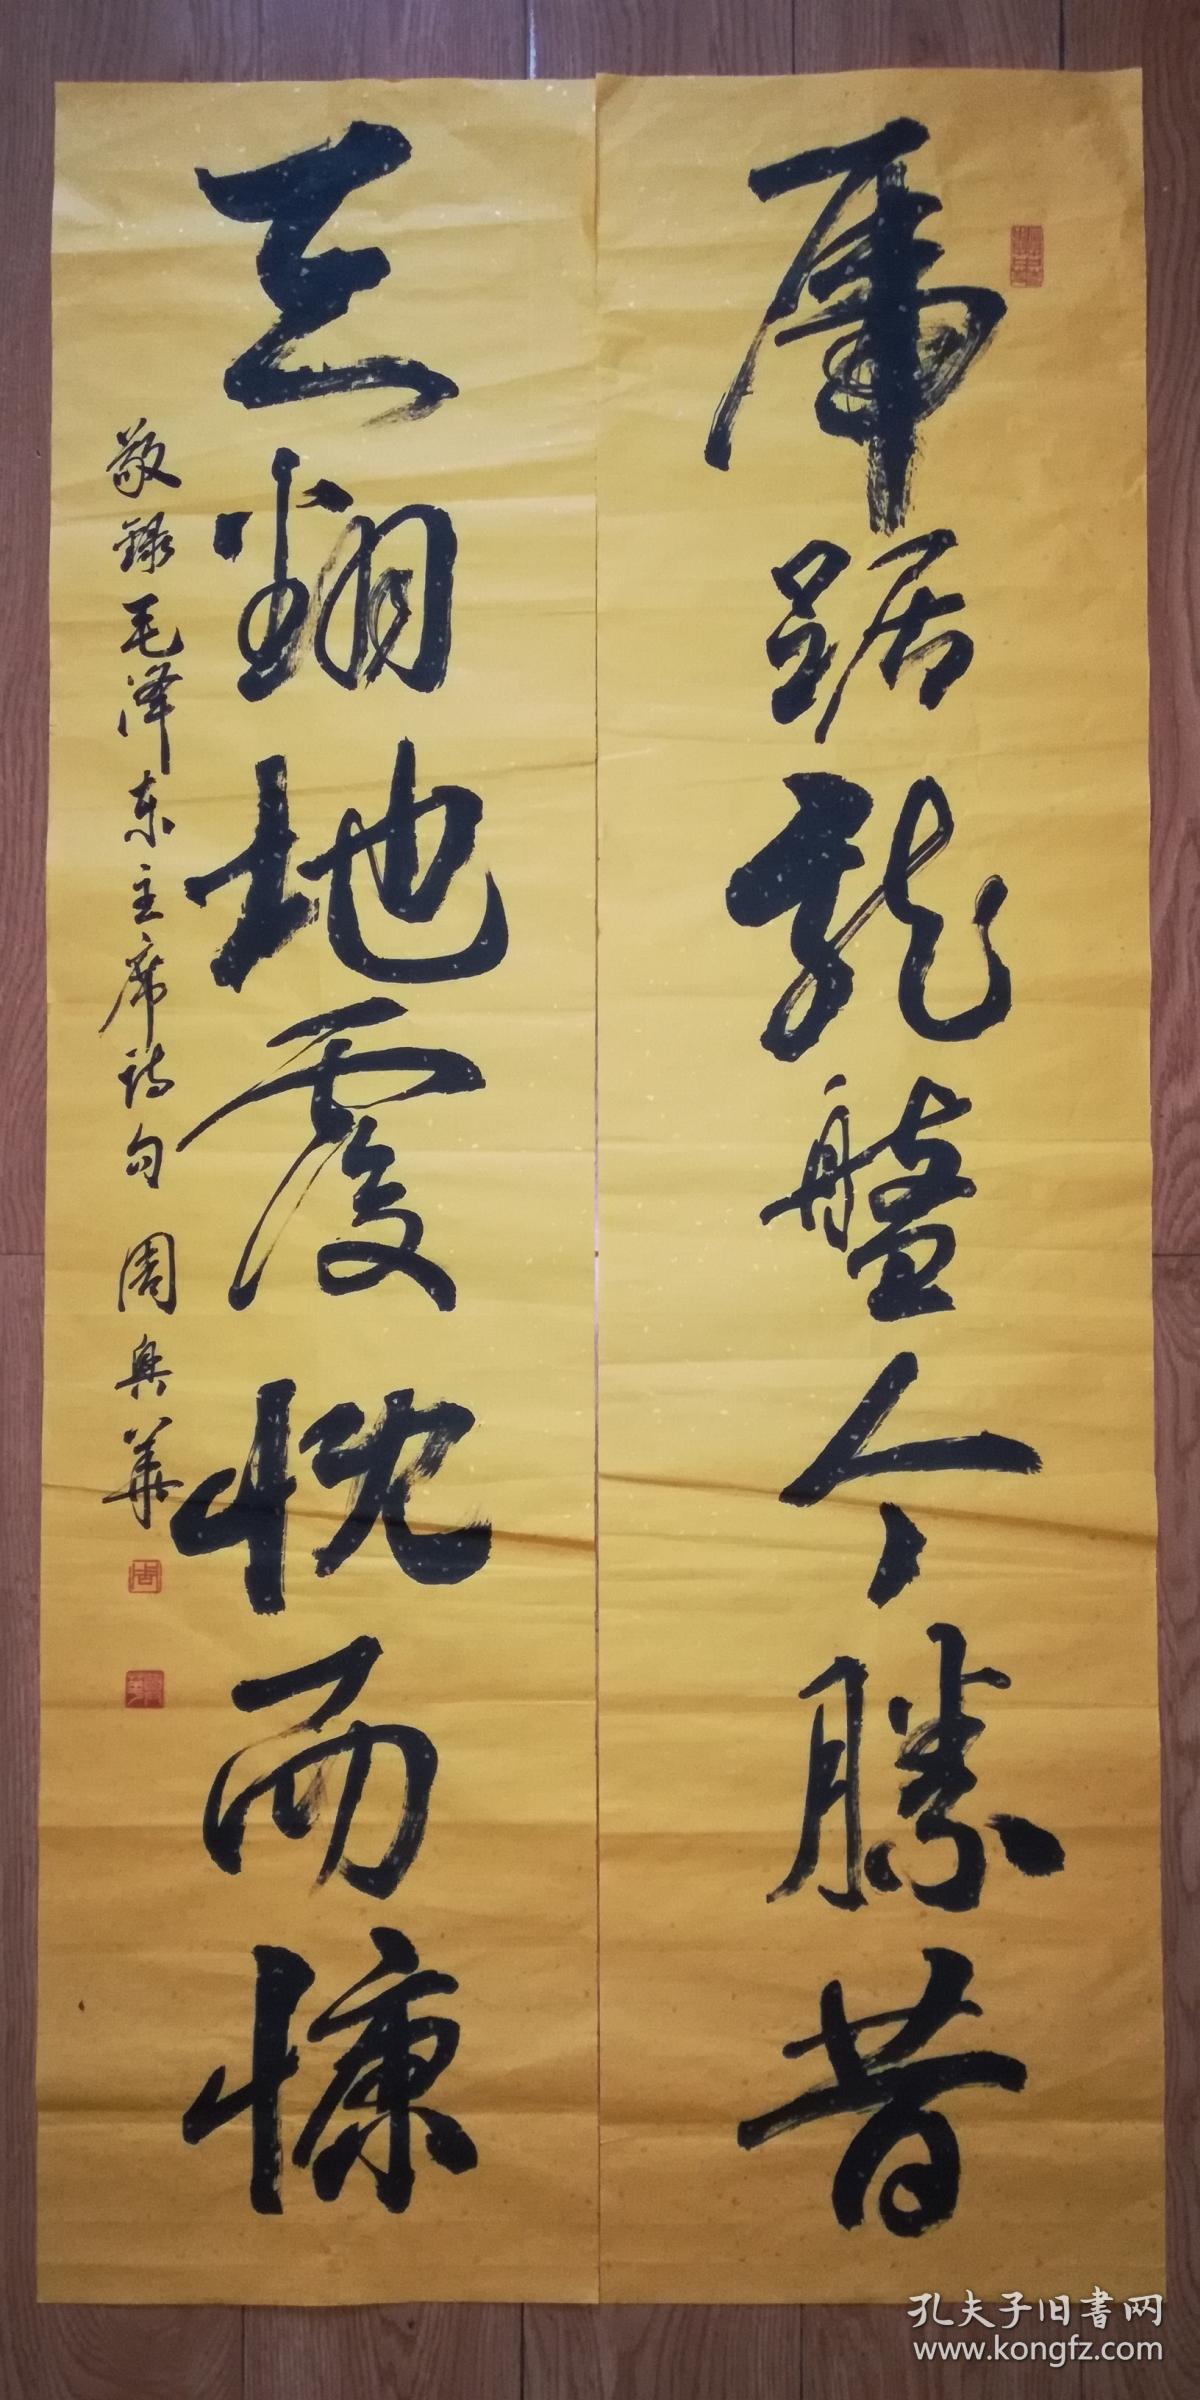 虎踞龙盘今胜昔
天翻地覆慨而慷
敬録毛泽东主席诗句 周兴華
孔夫子旧书网
www.kongfz.com